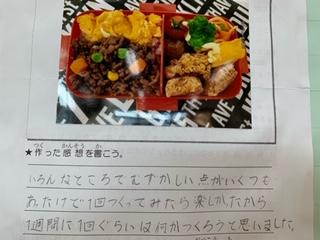 つく かんそう か
★作った感想を書こう。
いろんなところでむずかしい点がいくつも
あったけで1回つくってみたら楽しかったから
1週間に1回ぐらいは何かつくろうと思いました。